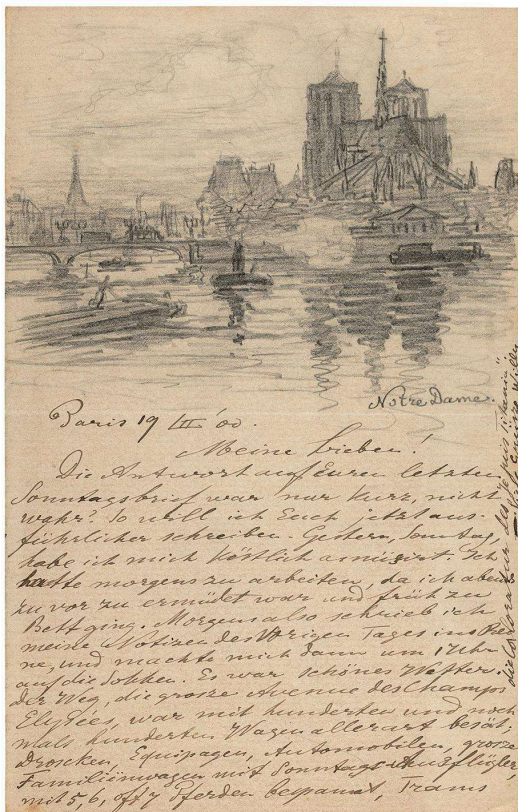 Notre Dame.
Paris 19 III '00.
Meine Lieben!
Die Antwort auf Euren letzten
Sonntagsbrief war nur kurz, nicht
wahr. So will ich Euch jetzt aus-
führlicher schreiben. Gestern, Sonntag,
habe ich mich köstlich amüsirt. Ich
hatte morgens zu arbeiten, da ich abends
zu vor zu ermüdet war und früh zu
Bett ging. Morgens also schrieb ich
meine Notizen des Vorigen Tages ins
ne, und machte mich dann um 1 Uhr
auf die Sokken. Es war schönes Wetter;
der Weg, die grosze Avenue des Champs
Elysées, war mit hunderten und noch
mals hunderten Wagen allerart besät;
Droschken, Equipagen, Automobilen, grosze
Familienwagen mit Sonntags Ausflügler,
mit 5, 6, oft 7 Pferden bespannt, Trams
Viele Grüsze Willy